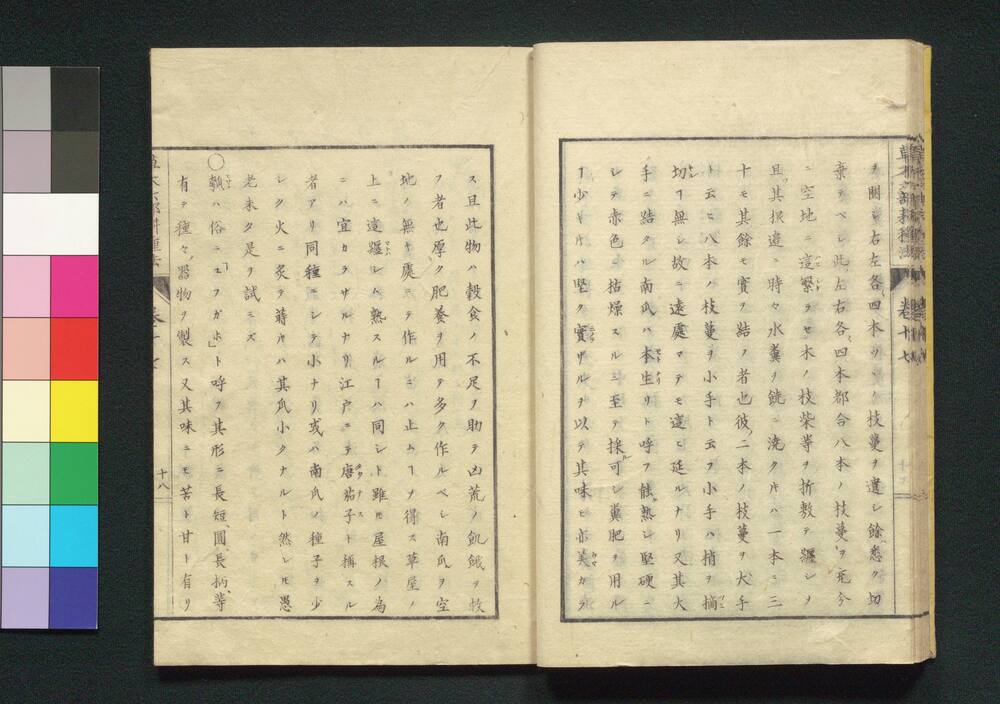 ヲ開シ右左各四本ツヽ枝蔓ヲ遺シ餘悉ク切
棄テベシ此左右各四本都合八本ノ枝蔓ヲ充分
ニ空地ニ這繁ラセ木ノ枝柴等ヲ折敷テ纒シメ
且其根邉ニ時々水糞ヲ饒ニ澆ク片ハ一本ニ三
十モ其餘モ實ヲ結ノ者也彼二本ノ枝蔓ヲ大手
ト云ヒ八本ノ枝蔓ヲ小手ト云フ小手ハ梢ヲ摘
切ヿ無シ故ニ遠處マテモ這ヒ延ルナリ又其大
手ニ結タル南瓜ハ本生リト呼フ能熟シ堅硬ニ
シテ赤色ニ枯燥スルニ至テ採可シ糞肥ヲ用ル
ヿ少キ片ハ堅ク實サルヲ以テ其味モ亦美カラ
草木六部耕種法 巻十七
ス且此物ハ穀食ノ不足ヲ助テ凶荒ノ飢餓ヲ救
フ者也厚ク肥養ヲ用テ多ク作ルベシ南瓜ヲ空
地ノ無キ處ニテ作ルニハ止ムヿヲ得ス草屋ノ
上ニ這纒シム熟スルヿハ同シト雖𪜈屋根ノ為
ニハ宜カラザルナリ江戸ニテ唐茄子ト稱スル
者アリ同種ニシテ小ナリ或ハ南瓜ノ種子ヲ少
シク火ニ炙テ蒔片ハ其瓜小クナルト然レ𪜈愚
老未タ是ヲ試ニズ
○瓠ハ俗ニユフガホト呼フ其形ニ長短圓長柄等
有テ種々ノ器物ヲ製ス又其味ニモ苦ト甘ト有リ
十八